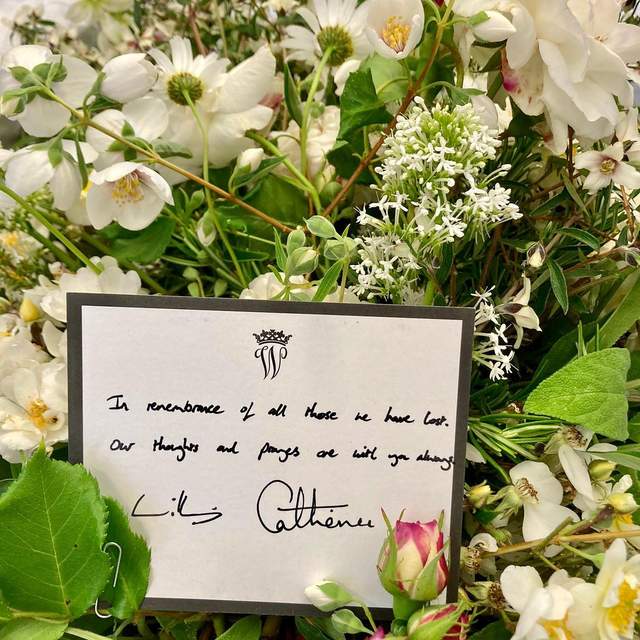 W
In remembrance of all those we have lost.
Our thoughts and prayers are with you always
William Catherine